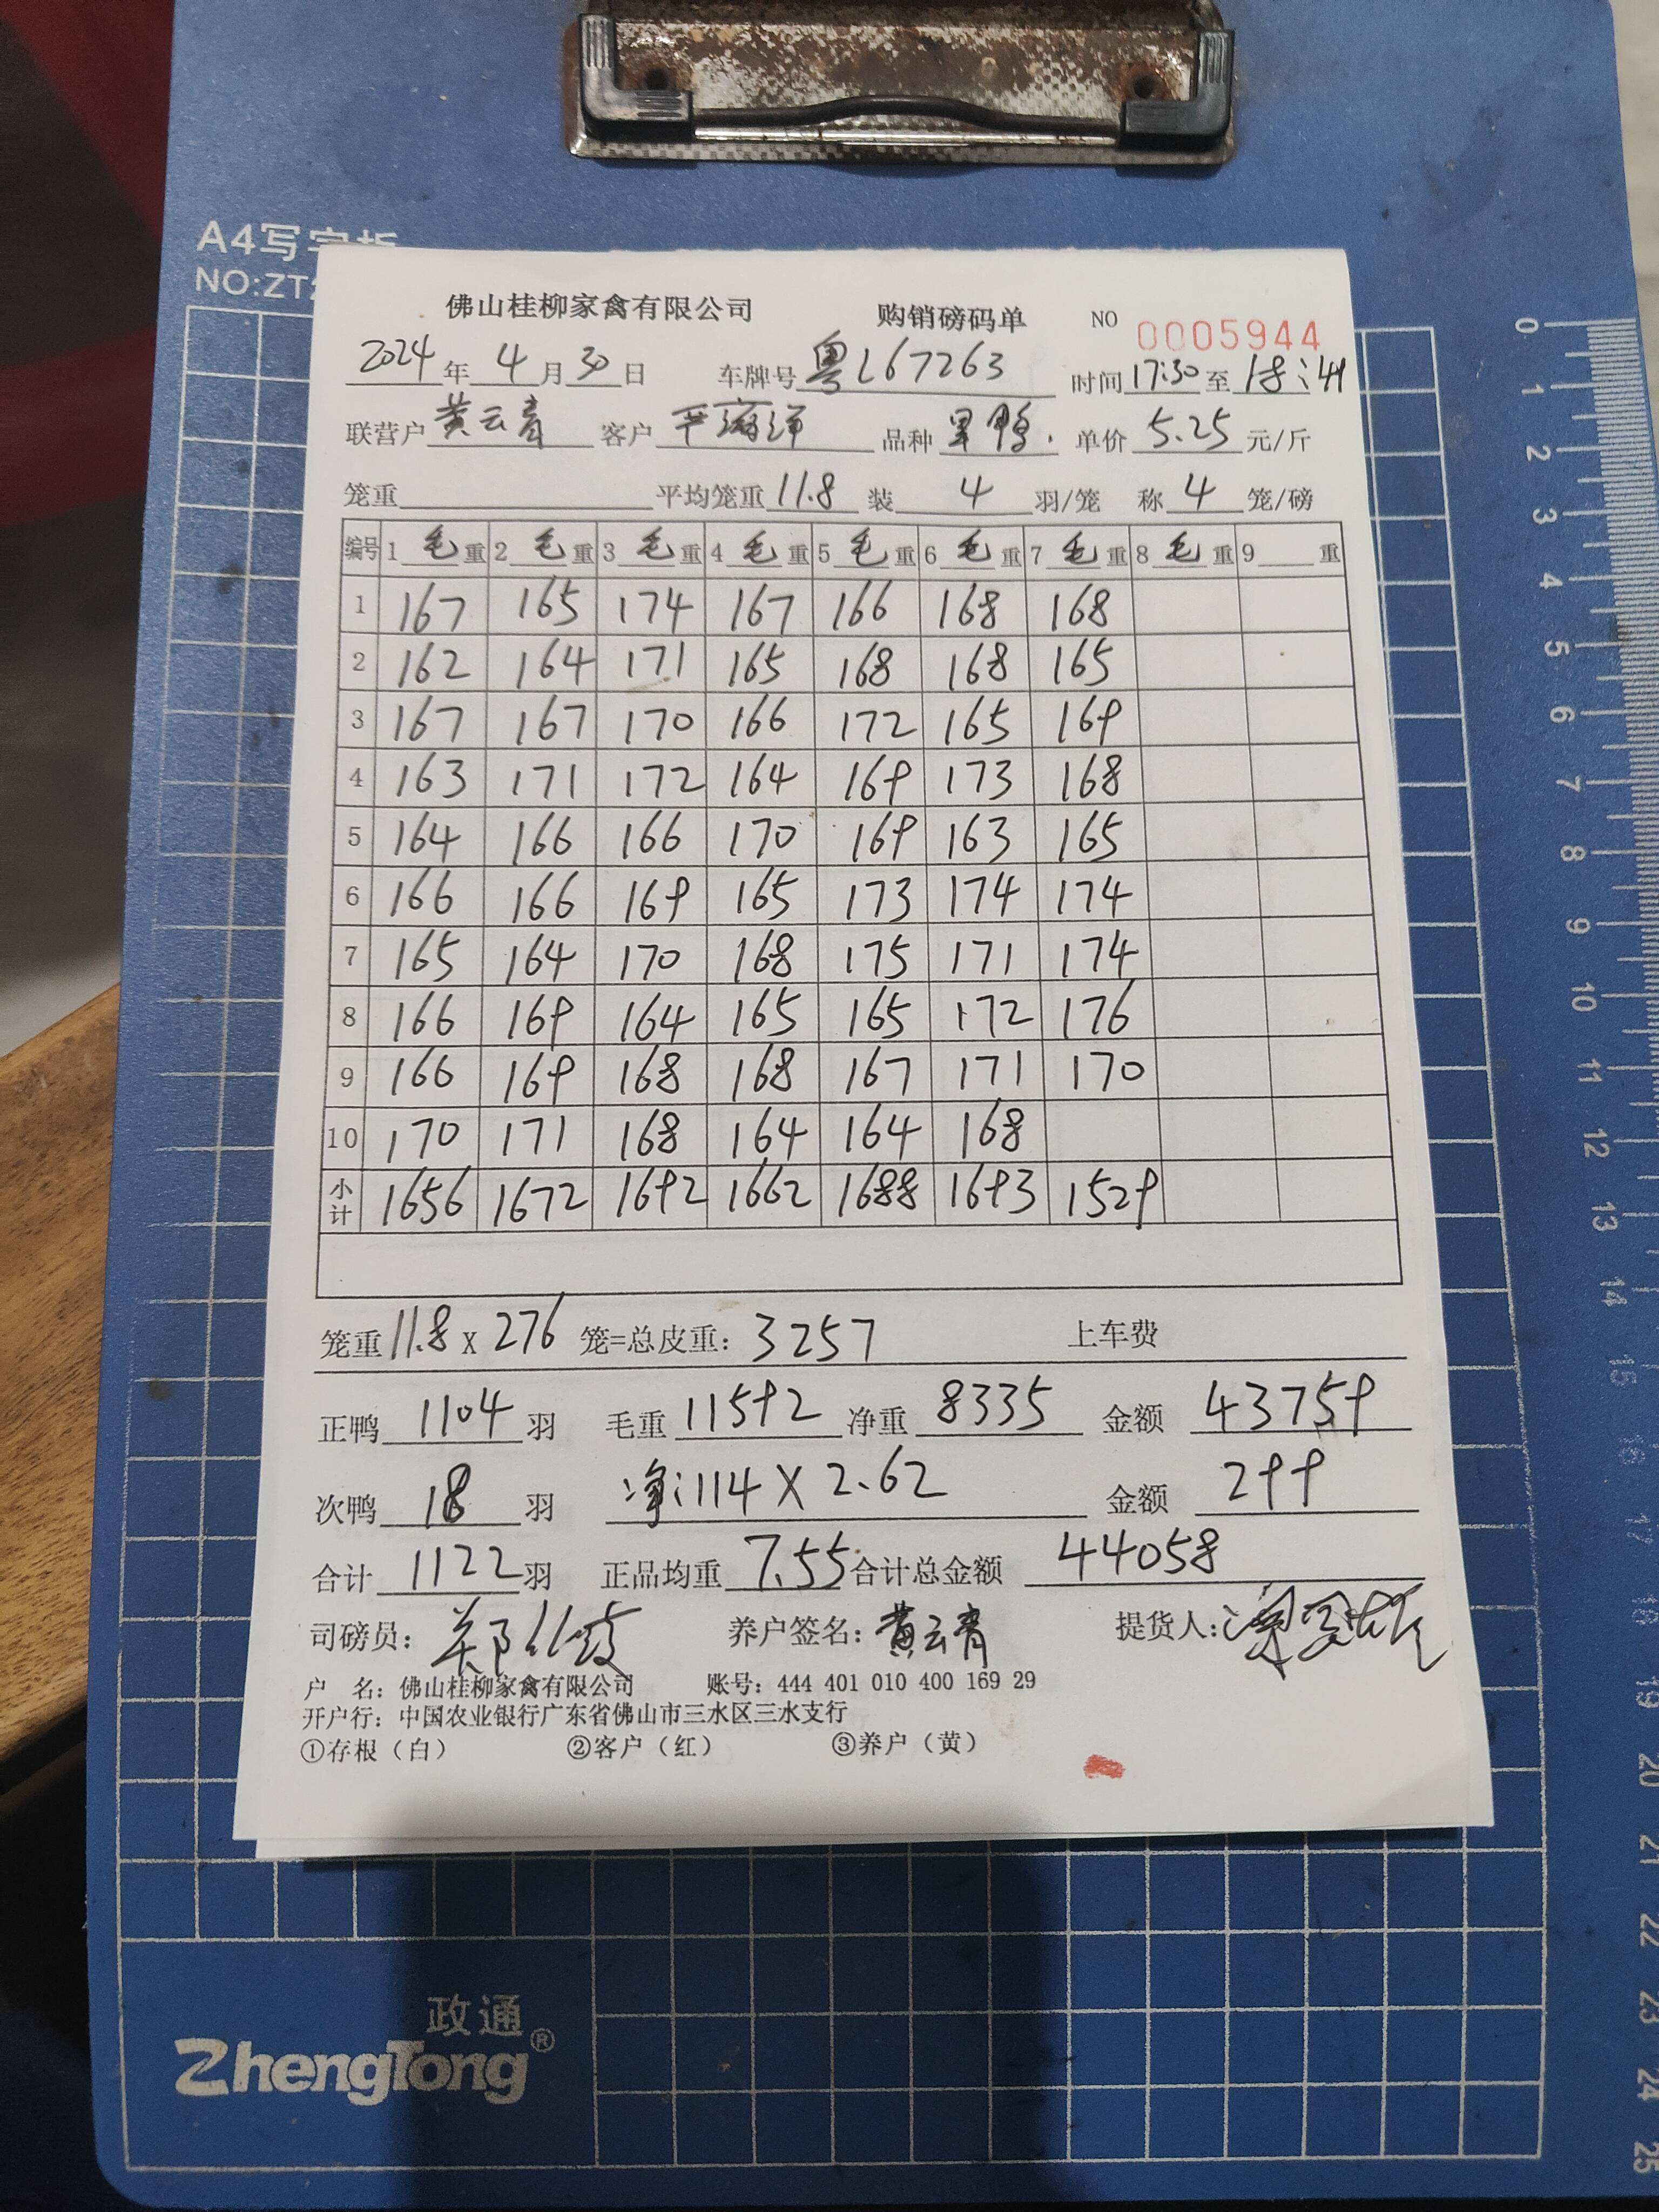 A4写字板
NO:ZT
佛山桂柳家禽有限公司 购销磅码单 NO 0005944
2024年4月30日 车牌号粤L67263 时间17:30至18:41
联营户黄云青 客户严海洋 品种黑鸭. 单价5.25元/斤
笼重 平均笼重11.8 装4羽/笼 称4笼/磅
编号 1毛重 2毛重 3毛重 4毛重 5毛重 6毛重 7毛重 8毛重 9重
1 167 165 174 167 166 168 168
2 162 164 171 165 168 168 165
3 167 167 170 166 172 165 169
4 163 171 172 164 169 173 168
5 164 166 166 170 169 163 165
6 166 166 169 165 173 174 174
7 165 164 170 168 175 171 174
8 166 169 164 165 165 172 176
9 166 169 168 168 167 171 170
10 170 171 168 164 164 168
小计 1656 1672 1692 1662 1688 1693 1529
笼重11.8 X 276 笼=总皮重: 3257 上车费
正鸭1104羽 毛重11592 净重8335 金额43759
次鸭18羽 净:114X2.62 金额299
合计1122羽 正品均重7.55 合计总金额44058
司磅员: 养户签名:黄云青 提货人:
户 名: 佛山桂柳家禽有限公司 账号: 444 401 010 400 169 29
开户行: 中国农业银行广东省佛山市三水区三水支行
①存根（白） ②客户（红） ③养户（黄）
政通
ZhengTong®
0
1
2
3
4
5
6
7
8
9
10
11
12
13
14
15
16
17
18
19
20
21
22
23
24
25